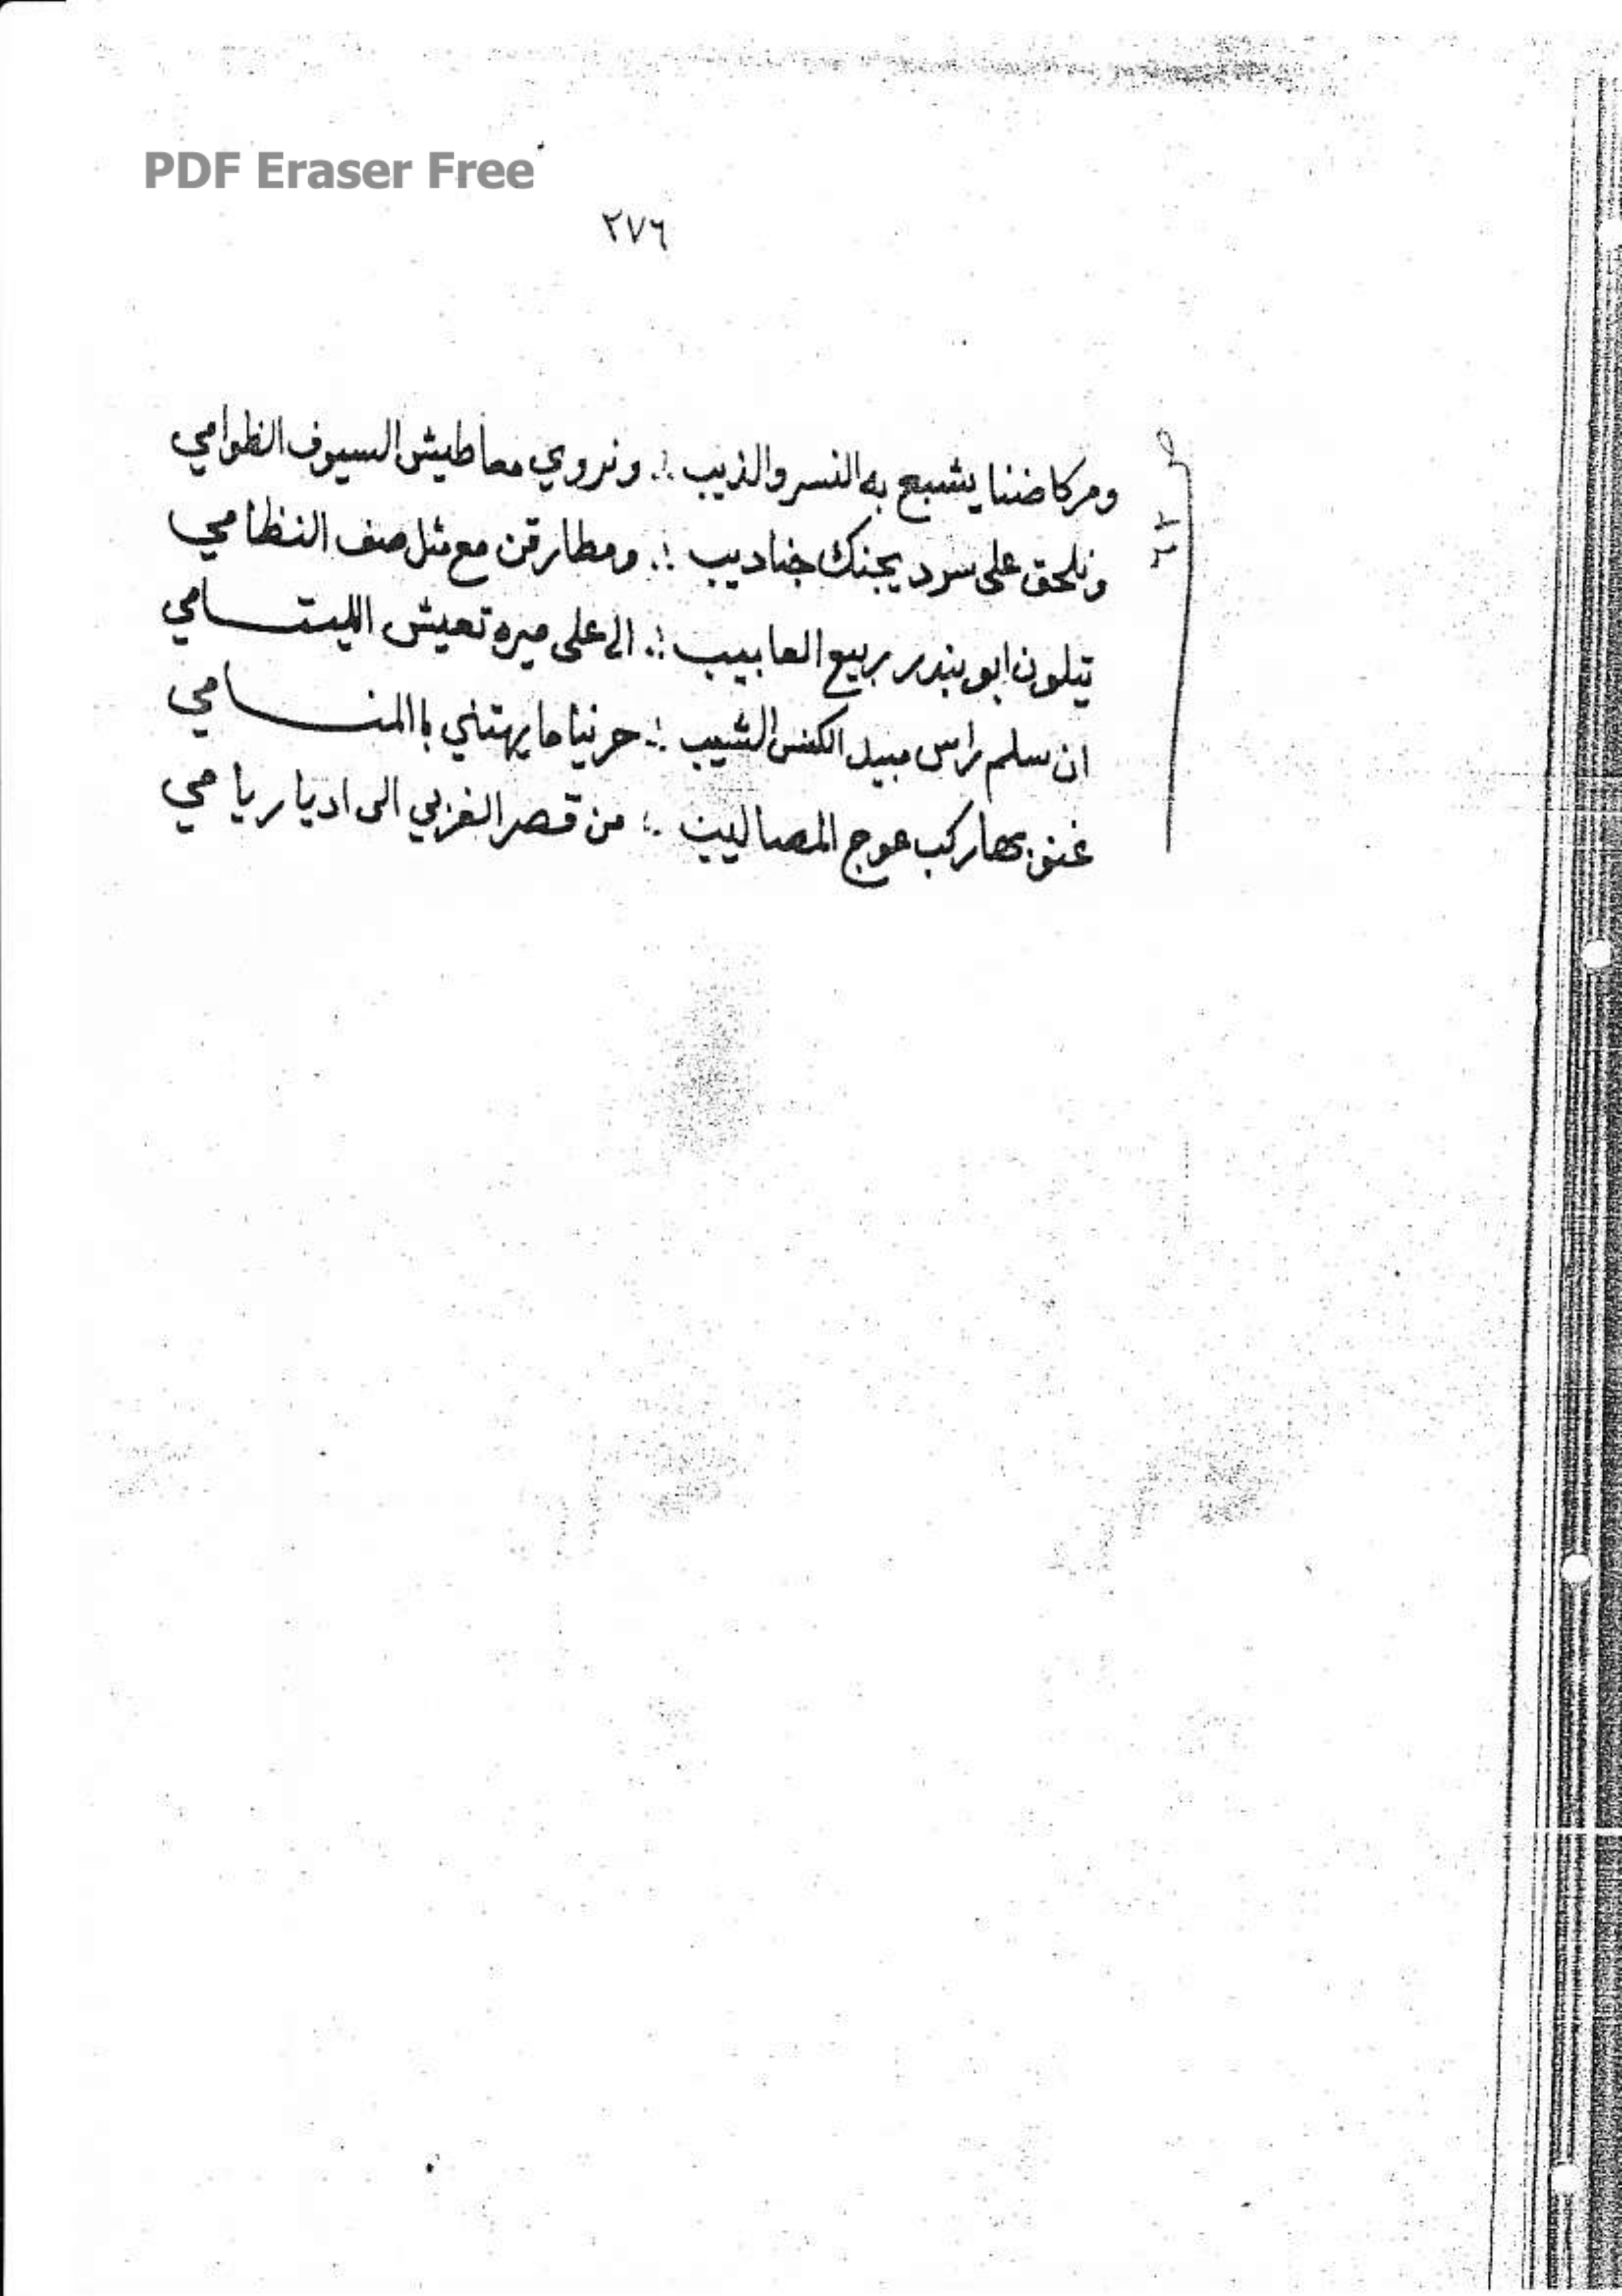 PDF Eraser Free
٢٧٦
ومركاضنا يشبع به النسر والذيب ∴ ونروي معاطيش السيوف الظوامي
ونلحق على سرد يجنك جناديب ∴ ومطارقن مع مثل صف النظامي
تيلون ابو بندر ربيع العابيب ∴ الى على ميره تعيش الليتامي
ان سلم راس مبيد الكنس الشيب ∴ حرنيا ما يهتني باالمنامي
غنو بها ركب عوج المصاليب ∴ من قصر الغزبي الى اديار يامي
ص